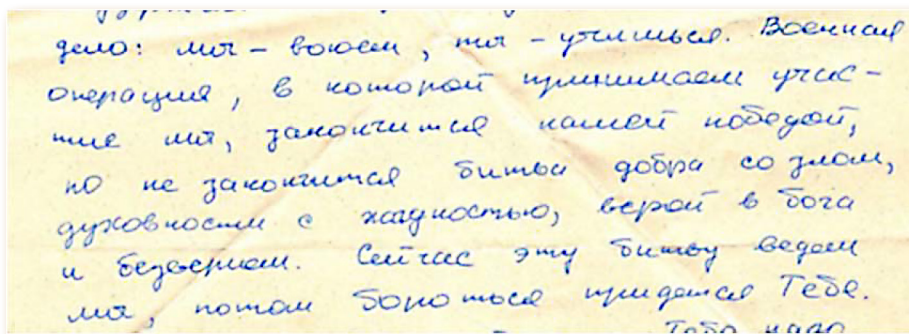 дело: мы – воюем, ты – учишься. Военная
операция, в которой принимаем учас-
тие мы, закончится нашей победой,
но не закончится битва добра со злом,
духовности с жадностью, верой в бога
и безверием. Сейчас эту битву ведем
мы, потом бороться придется Тебе.
Тебе надо